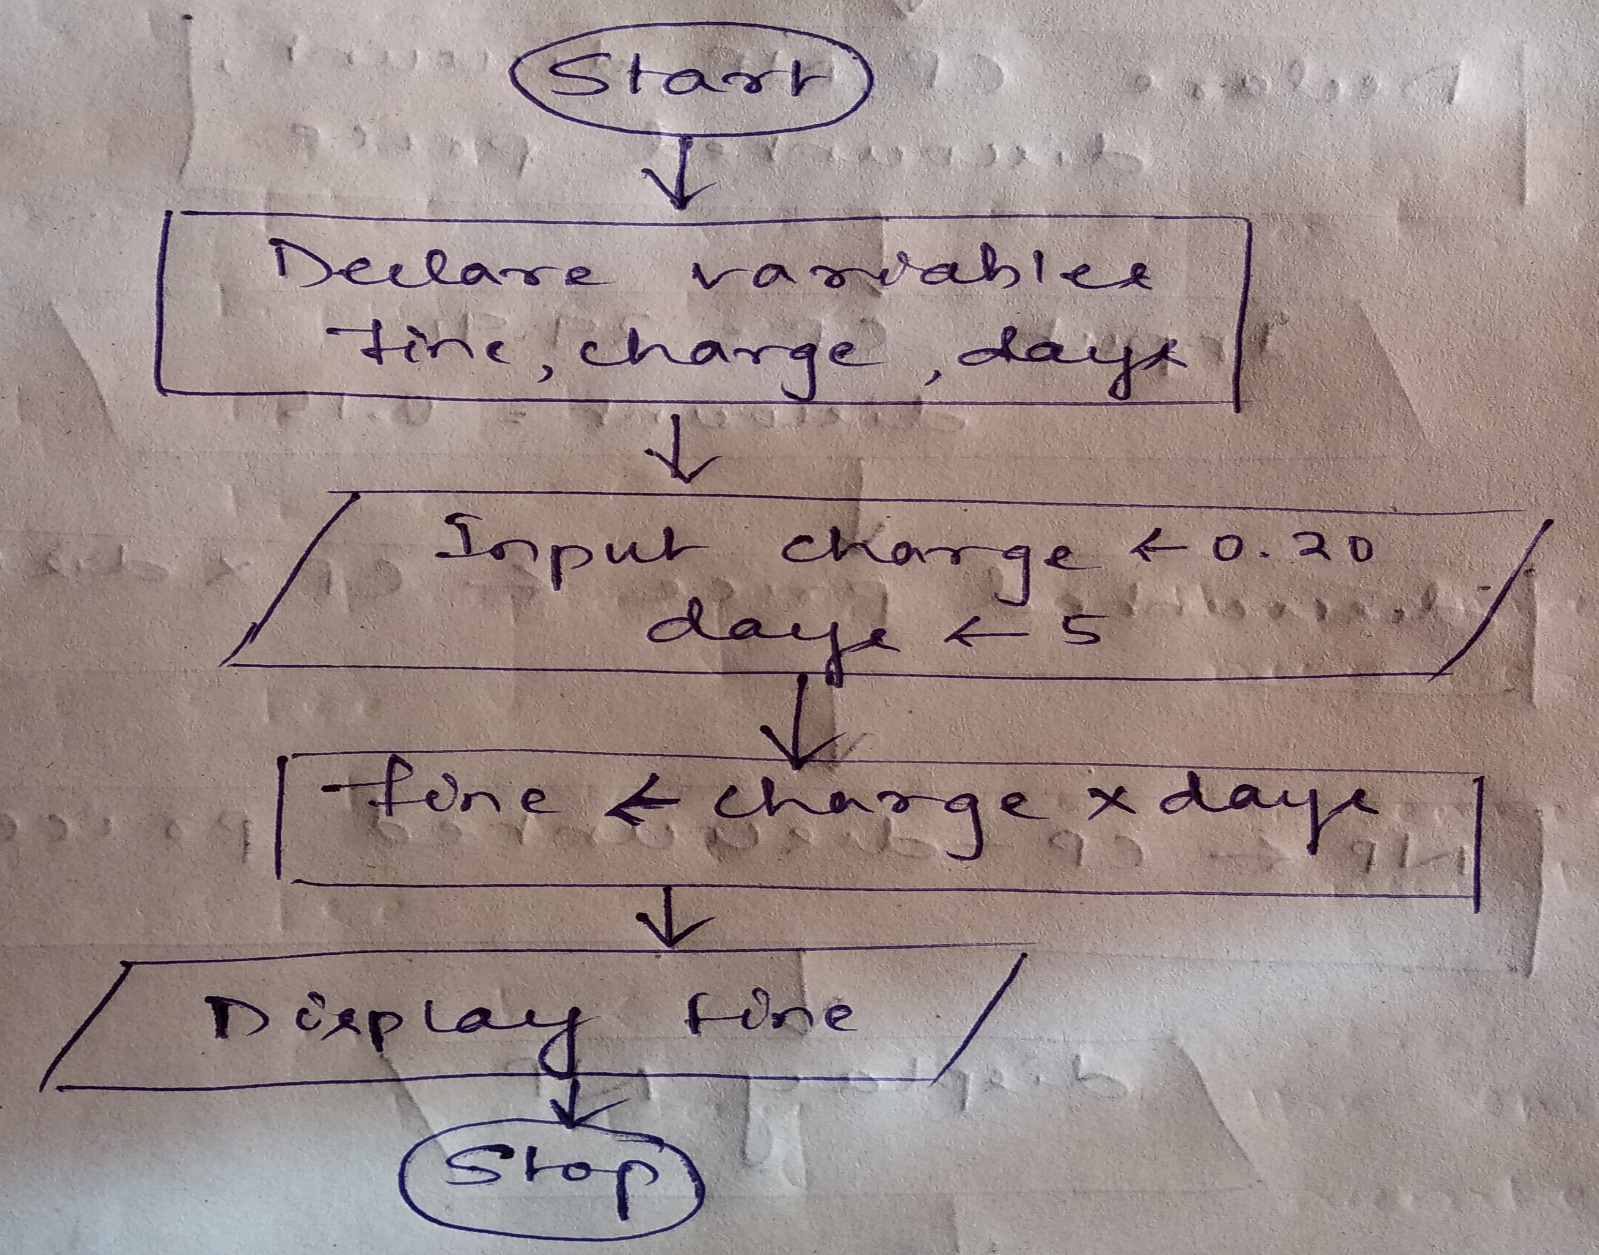 Start
Declare variables
fine, charge, days
Input charge ← 0.20
days ← 5
fine ← charge x days
Display fine
Stop